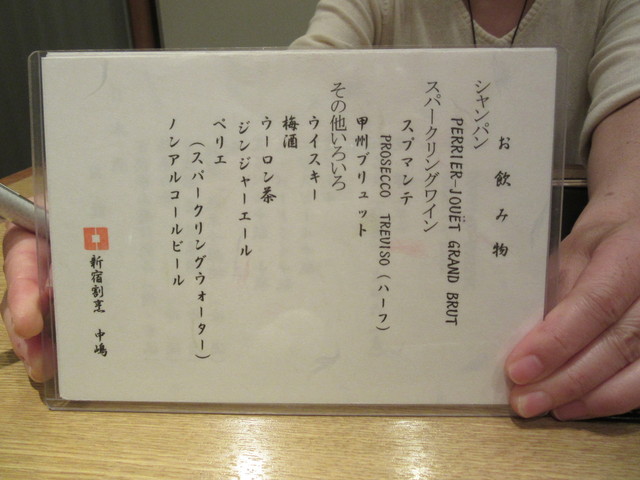 お飲み物
シャンパン
PERRIER-JOUËT GRAND BRUT
スパークリングワイン
スプマンテ
PROSECCO TREVISO (ハーフ)
甲州ブリュット
その他いろいろ
ウイスキー
梅酒
ウーロン茶
ジンジャーエール
ペリエ
(スパークリングウォーター)
ノンアルコールビール
新宿割烹 中嶋